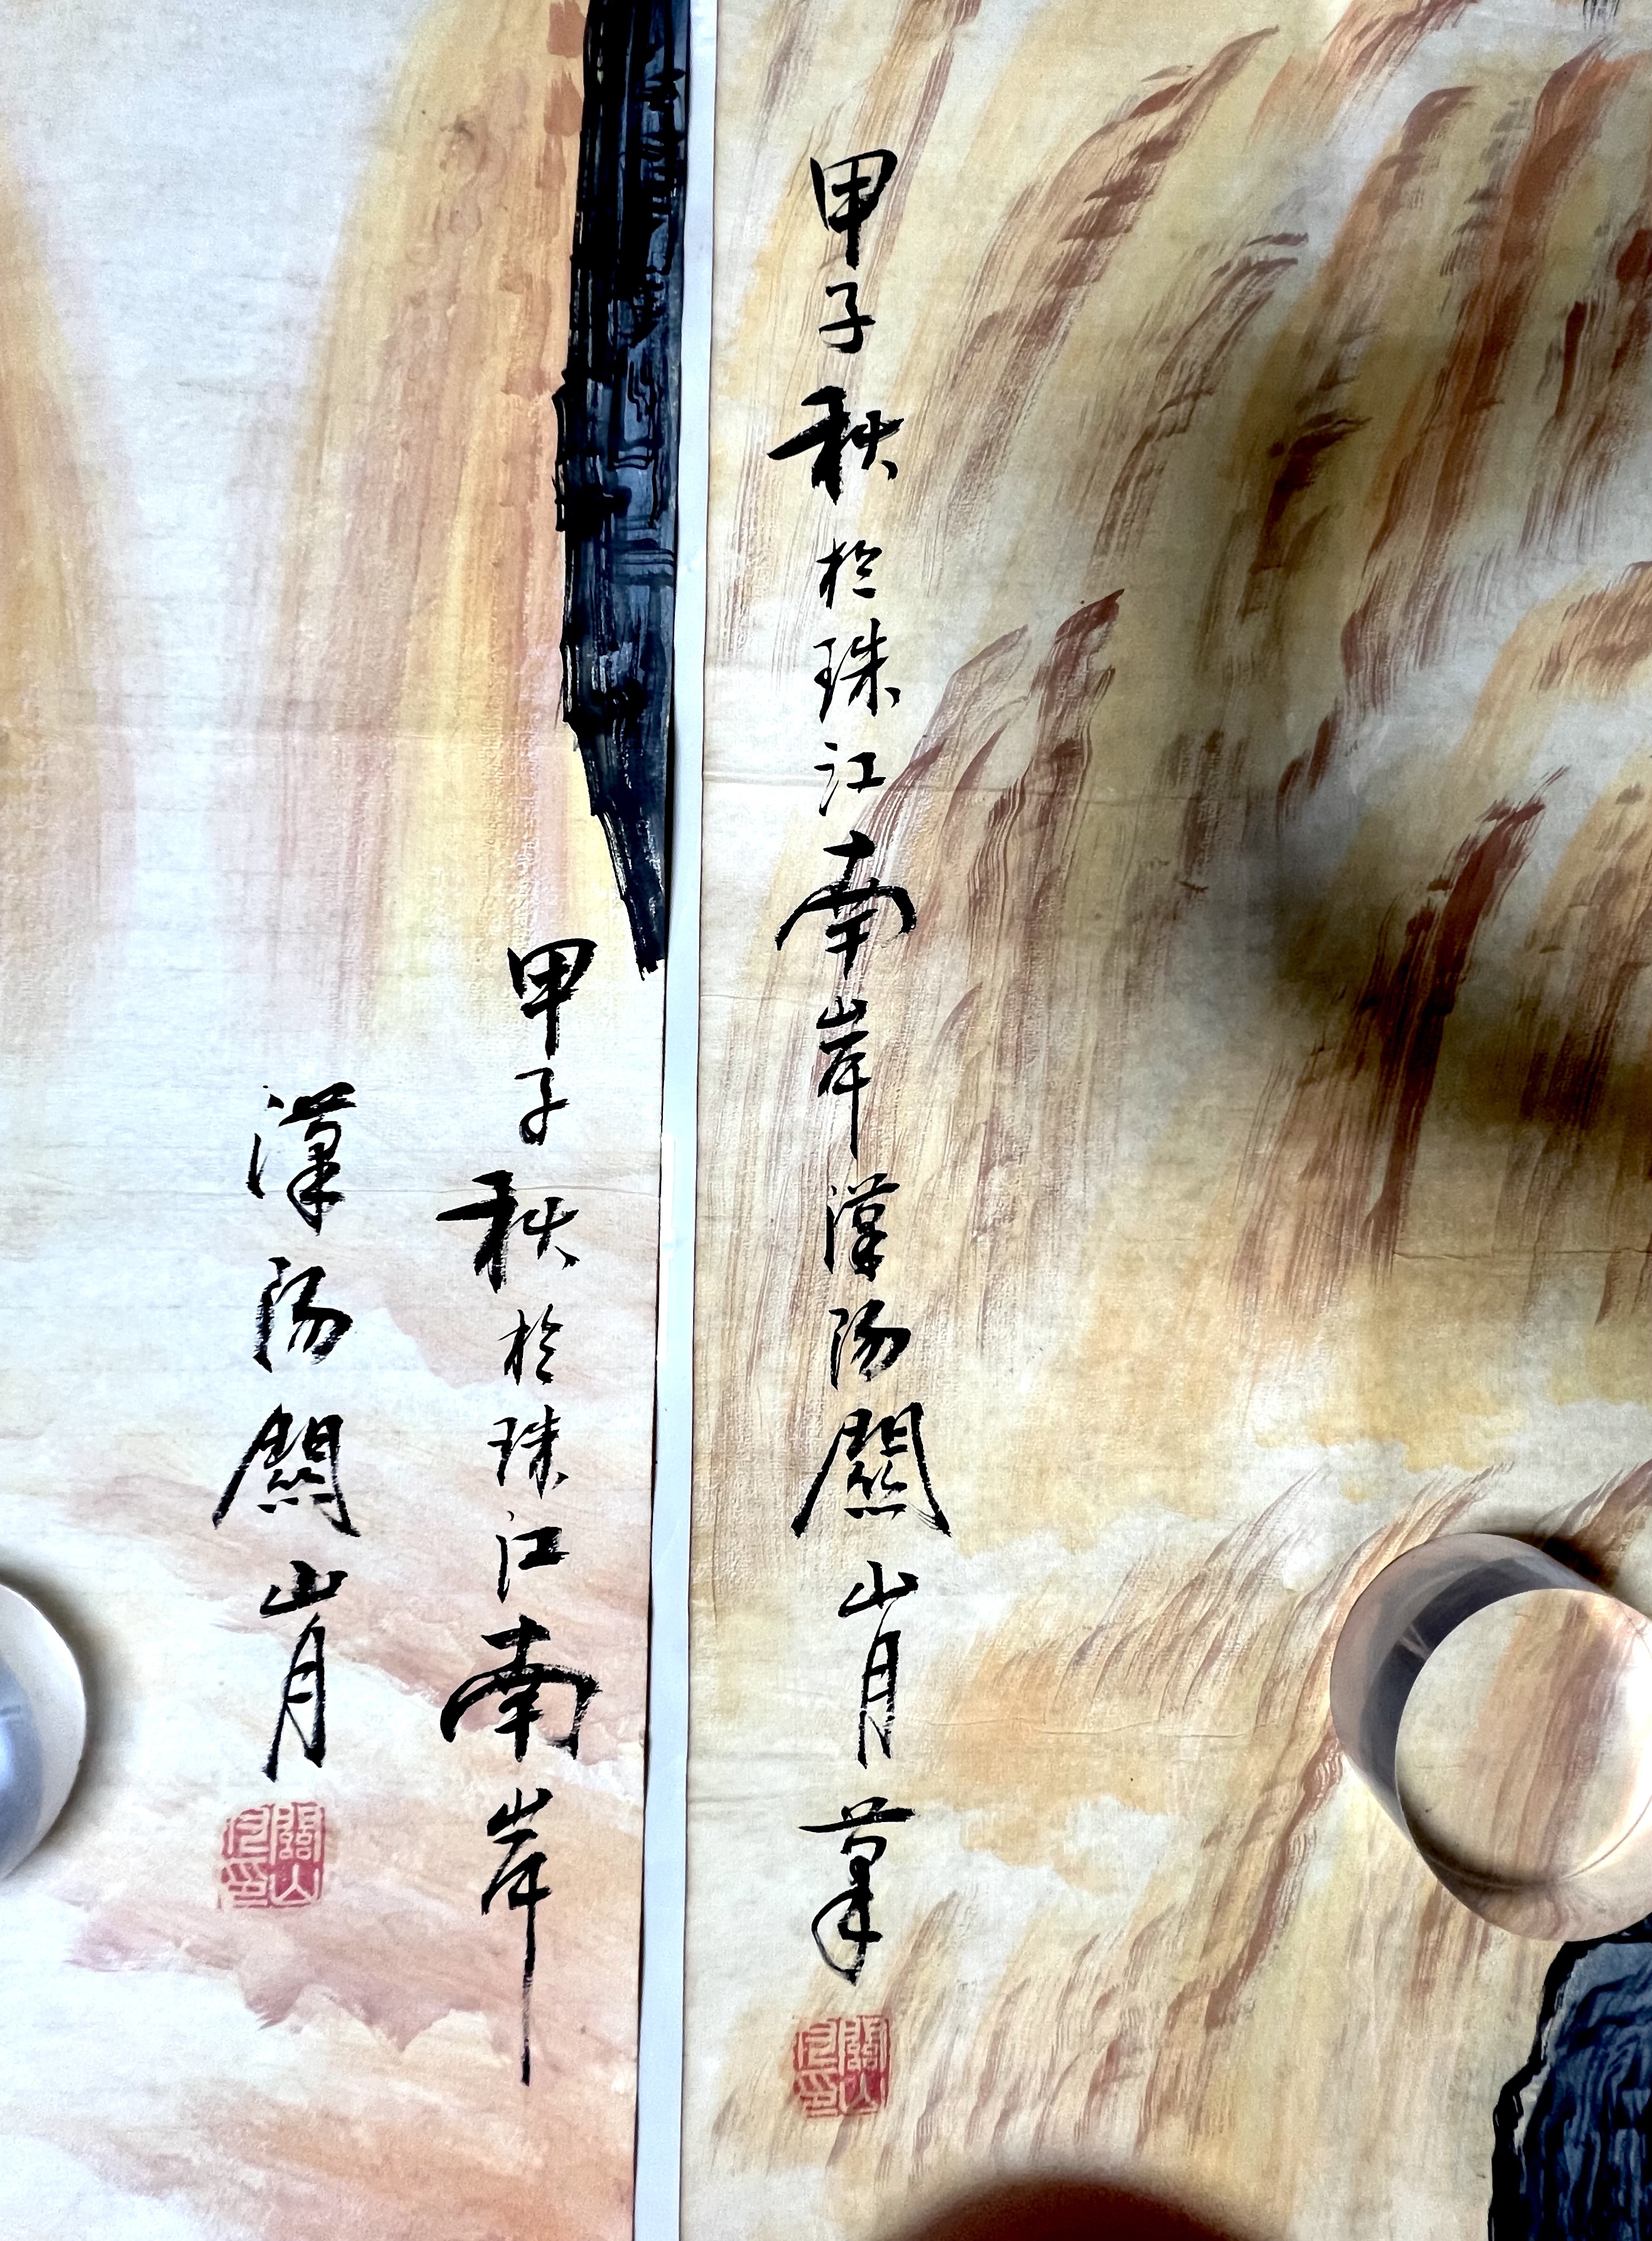 甲子秋於珠江南岸漢陽關山月筆
關山月印
甲子秋於珠江南岸
漢陽關山月
關山月印